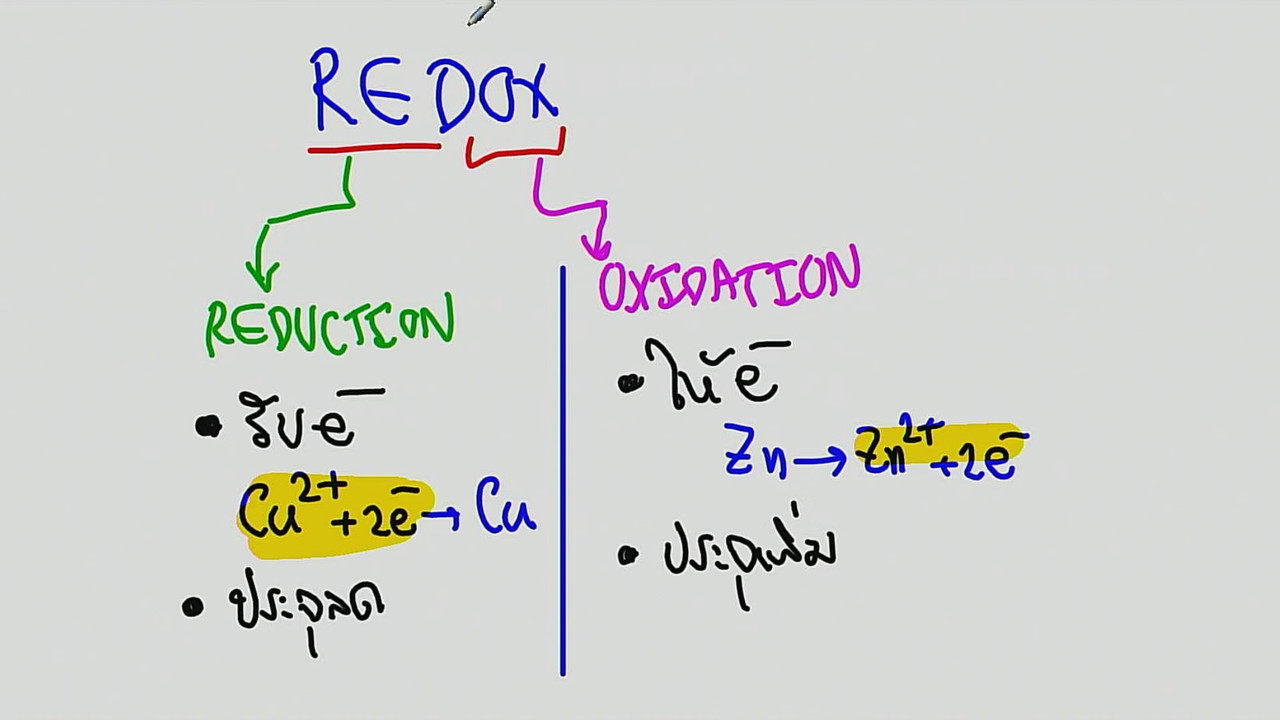 REDOX
REDUCTION
• รับ e⁻
Cu²⁺ + 2e⁻ → Cu
• ประจุลด
OXIDATION
• ให้ e⁻
Zn → Zn²⁺ + 2e⁻
• ประจุเพิ่ม